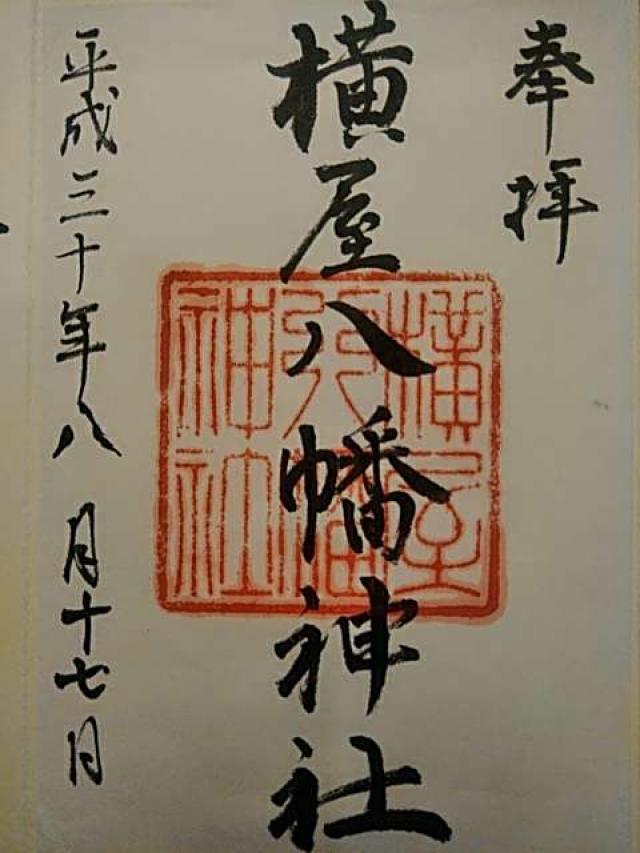 奉拝
横屋八幡神社
横屋
八幡
神社
平成三十年八月十七日